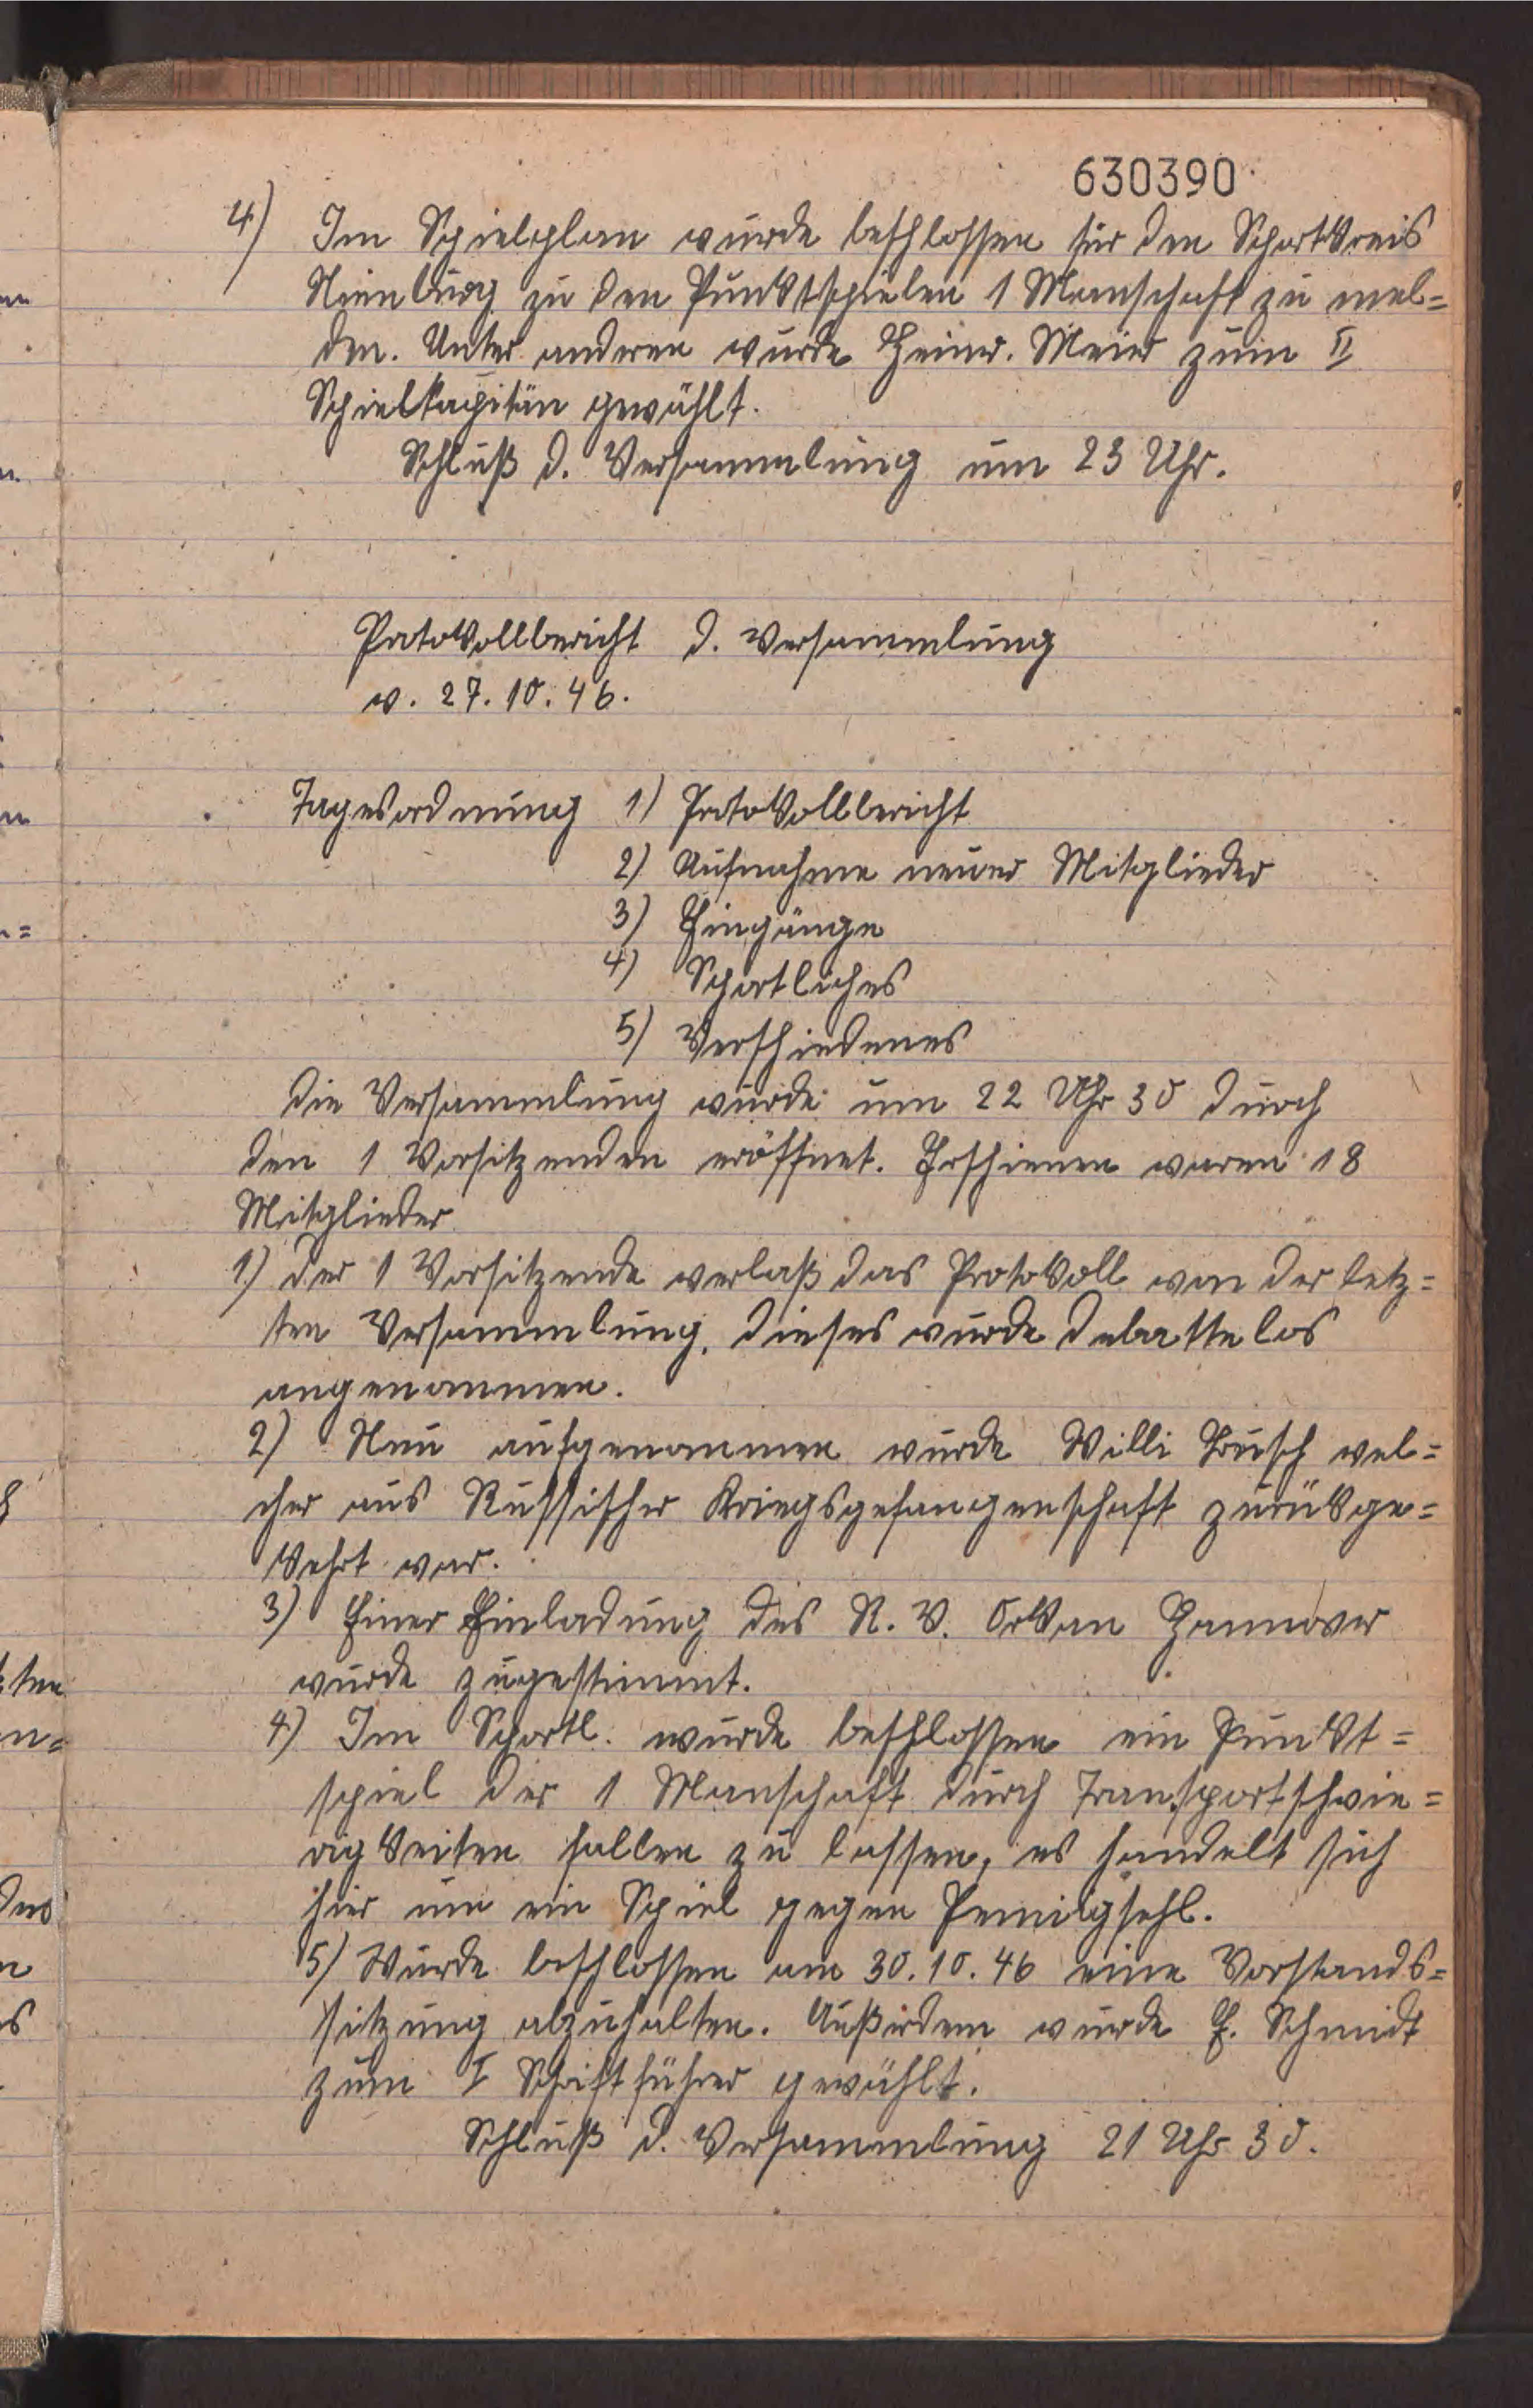 630390
4) Im Spielplan wurde beschlossen für den Sportkreis
Nienburg zu den Punktspielen 1 Manschaft zu mel=
den. Unter anderen wurde Heinr. Meier zum II
Spielkapitän gewählt.
Schluß d. Versammlung um 23 Uhr.
Protokollbericht d. Versammlung
v. 27.10.46.
Tagesordnung 1) Protokollbericht
2) Aufnahme neuer Mitglieder
3) Eingänge
4) Sportliches
5) Verschiedenes
Die Versammlung wurde um 22 Uhr 30 durch
den 1 Vorsitzenden eröffnet. Erschienen waren 18
Mitglieder
1) Der 1 Vorsitzende verlaß das Protokoll von der letz=
ten Versammlung. Dieses wurde debattelos
angenommen.
2) Neu aufgenommen wurde Willi Busch wel=
cher aus Russischer Kriegsgefangenschaft zurükge=
kehrt war.
3) Einer Einladung des R. V. Orkan Hannover
wurde zugestimmt.
4) Im Sportl. wurde beschlossen ein Punkt=
spiel der 1 Manschaft durch Transportschwie=
rigkeiten fallen zu lassen, es handelt sich
hier um ein Spiel gegen
5) Wurde beschlossen am 30.10.46 eine Vorstands=
sitzung abzuhalten. Außerdem wurde E. Schmidt
zum I Schriftführer gewählt.
Schluß d. Versammlung 21 Uhr 30.